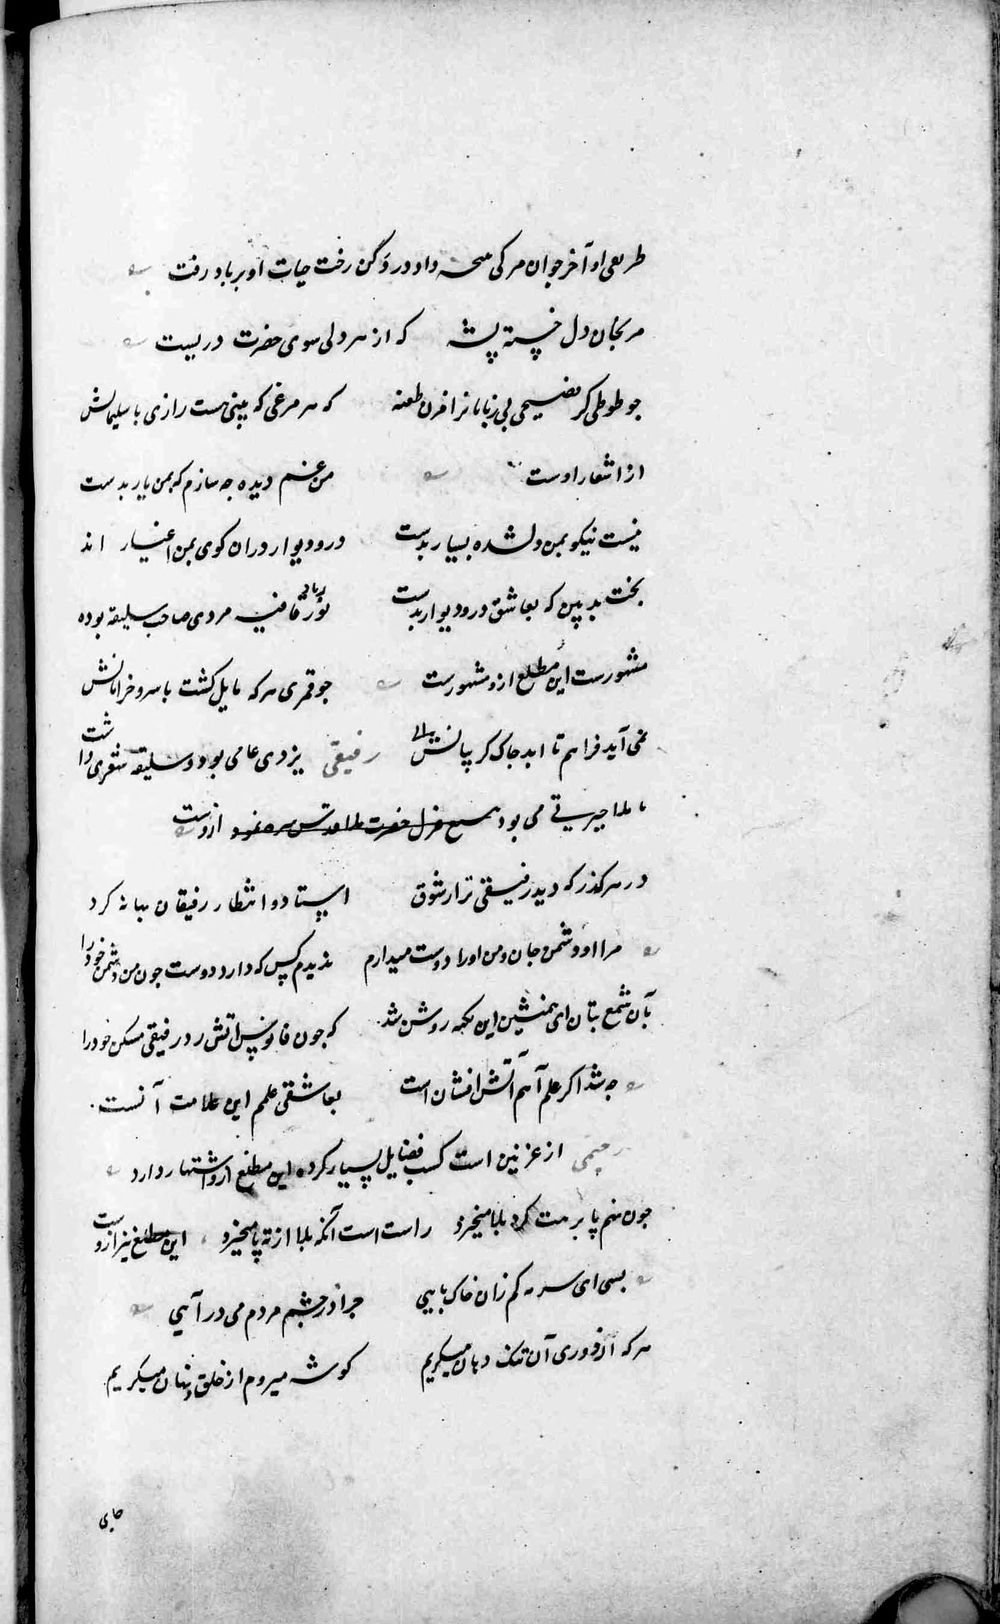 او آخر جوان مرکی داد در دکن رخت حیات او برباد رفت
مرنجان دل خسته پشه که از هر دلی سوی حضرت دریست
جو طوطی کر فصیحی بی زبانانرا مزن طعنه که هر مرغی که بینی هست رازی با سلیمانش
از اشعار اوست من غم دیده جه سازم که بمن یار بدست
نیست نیکو بمن دلشده بسیار بدست در و دیوار دران کوی بمن اغیار اند
بخت بد بین که بعاشق در و دیوار بدست مردی صاحب سلیقه بوده
مشهورست این مطلع ازو مشهورست جو قمری هر که مایل کشت با سرو خرامانش
نمی آید فراهم تا ابد جاک کریبانش رفیقی یزدی عامی بود و سلیقه شعری داشت
با ملا حیرتی می بود تتبع غزل حضرت ازوست
در هر کذر که دید رفیقی ترا ز شوق ایستاد و انتظار رفیقان بهانه کرد
مرا او دشمن جان و من اورا دوست میدارم ندیدم کس که دارد دوست جون من دشمن خود را
بآن شمع بتان ای همنشین این نکته روشن شد که جون فانوس آتش زد رفیقی مسکن خود را
جه شد اکر علم آهم آتش افشان است بعاشقی علمم این علامت آنست
از غزنین است کسب فضایل بسیار کرده این مطلع ازو اشتهار دارد
جون نهم پا برهت کرد بلا میخیزد راست است آنکه بلا از ته پا میخیزد این مطلع نیز ازوست
بسی ای سرمه کم زان خاک پایی جرا در جشم مردم می در آیی
هر که از دوری آن تنک دهان میکریم کوشه میروم از خلق و نهان میکریم